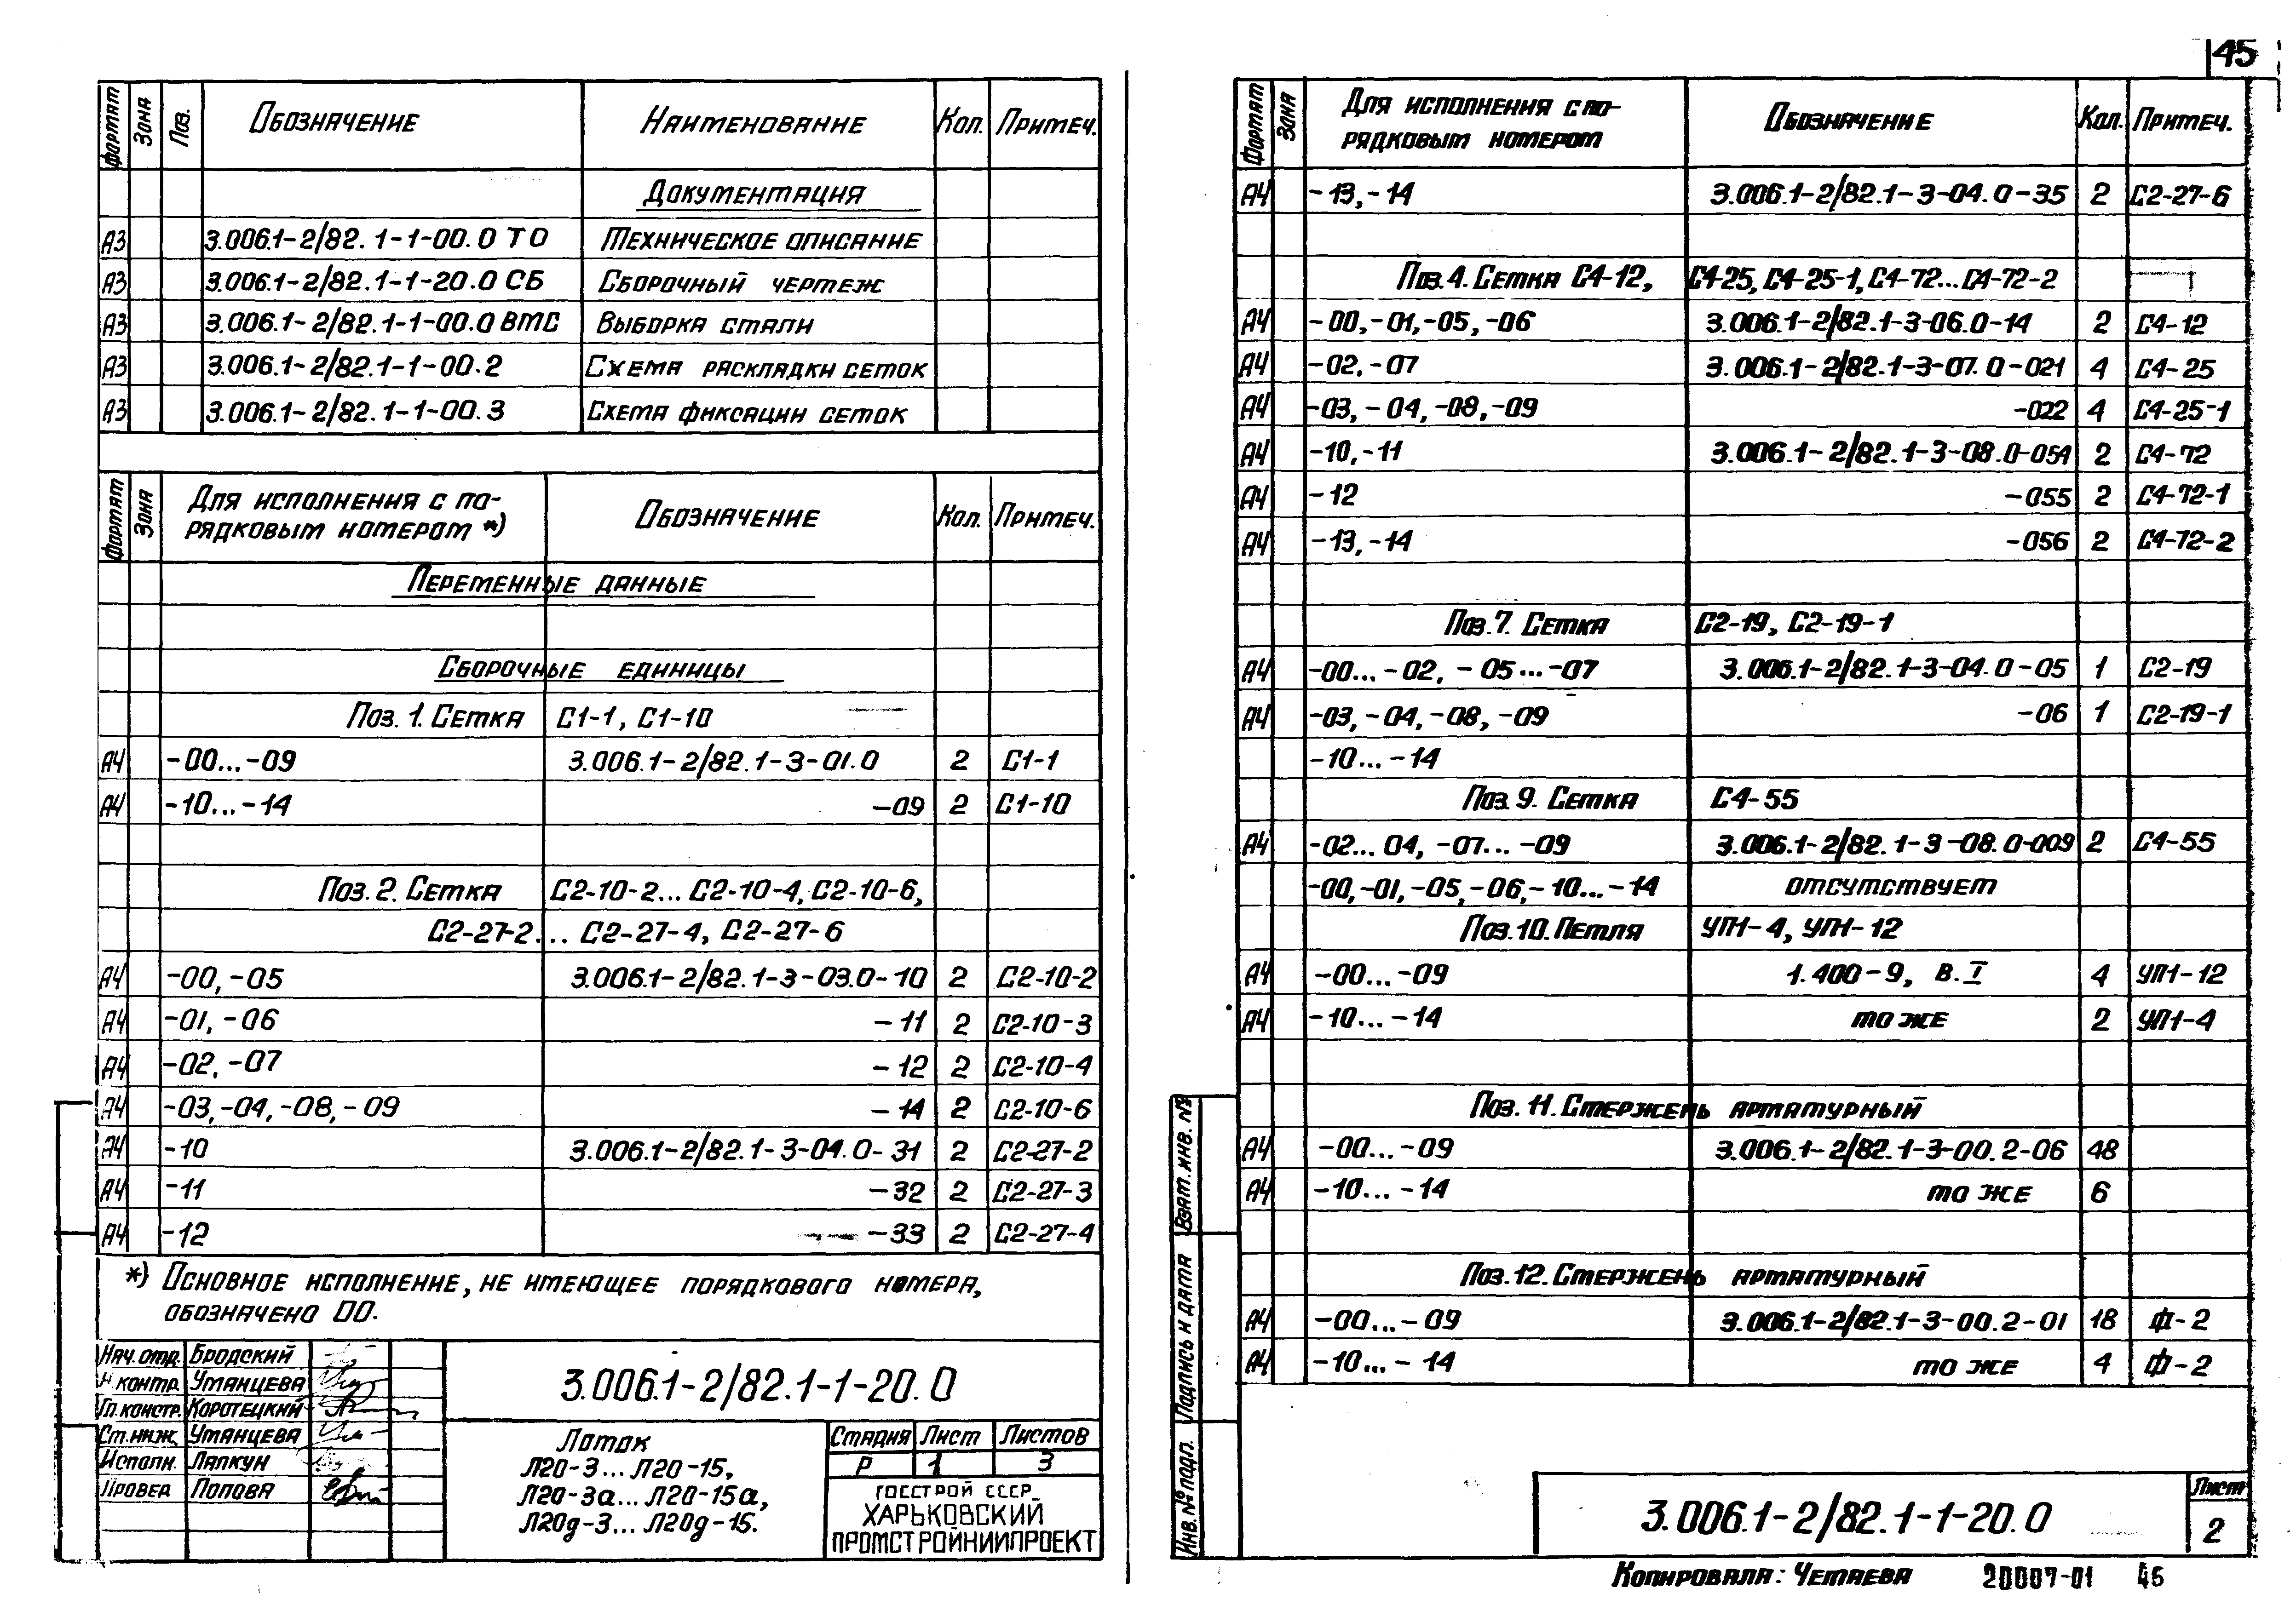 45
Формат Зона Поз. Обозначение Наименование Кол. Примеч.
Документация
А3 3.006.1-2/82.1-1-00.0 ТО Техническое описание
А3 3.006.1-2/82.1-1-20.0 СБ Сборочный чертеж
А3 3.006.1-2/82.1-1-00.0 ВМС Выборка стали
А3 3.006.1-2/82.1-1-00.2 Схема раскладки сеток
А3 3.006.1-2/82.1-1-00.3 Схема фиксации сеток
Формат Зона Для исполнения с по- Обозначение Кол. Примеч.
рядковым номером *)
Переменные данные
Сборочные единицы
Поз. 1. Сетка С1-1, С1-10
А4 -00...-09 3.006.1-2/82.1-3-01.0 2 С1-1
А4 -10...-14 -09 2 С1-10
Поз. 2. Сетка С2-10-2... С2-10-4, С2-10-6,
С2-27-2... С2-27-4, С2-27-6
А4 -00,-05 3.006.1-2/82.1-3-03.0-10 2 С2-10-2
А4 -01,-06 -11 2 С2-10-3
А4 -02,-07 -12 2 С2-10-4
А4 -03,-04,-08,-09 -14 2 С2-10-6
А4 -10 3.006.1-2/82.1-3-04.0-31 2 С2-27-2
А4 -11 -32 2 С2-27-3
А4 -12 -33 2 С2-27-4
*) Основное исполнение, не имеющее порядкового номера,
обозначено 00.
Нач. отд. Бродский
Н контр. Уманцева
Гл. констр. Коротецкий
Ст. инж. Уманцева
Исполн. Лапкун
Провер Попова
3.006.1-2/82.1-1-20.0
Лоток
Л20-3... Л20-15,
Л20-3а... Л20-15а,
Л20д-3... Л20д-15.
Стадия Лист Листов
Р 1 3
ГОССТРОЙ СССР
ХАРЬКОВСКИЙ
ПРОМСТРОЙНИИПРОЕКТ
Формат Зона Для исполнения с по- Обозначение Кол. Примеч.
рядковым номером
А4 -13,-14 3.006.1-2/82.1-3-04.0-35 2 С2-27-6
Поз. 4. Сетка С4-12, С4-25, С4-25-1, С4-72... С4-72-2
А4 -00,-01,-05,-06 3.006.1-2/82.1-3-06.0-14 2 С4-12
А4 -02,-07 3.006.1-2/82.1-3-07.0-021 4 С4-25
А4 -03,-04,-08,-09 -022 4 С4-25-1
А4 -10,-11 3.006.1-2/82.1-3-08.0-054 2 С4-72
А4 -12 -055 2 С4-72-1
А4 -13,-14 -056 2 С4-72-2
Поз. 7. Сетка С2-19, С2-19-1
А4 -00...-02, -05...-07 3.006.1-2/82.1-3-04.0-05 1 С2-19
А4 -03,-04,-08,-09 -06 1 С2-19-1
-10...-14
Поз. 9. Сетка С4-55
А4 -02... 04, -07...-09 3.006.1-2/82.1-3-08.0-009 2 С4-55
-00,-01,-05,-06,-10...-14 отсутствует
Поз. 10. Петля УП1-4, УП1-12
А4 -00...-09 1.400-9, В. I 4 УП1-12
А4 -10...-14 то же 2 УП1-4
Поз. 11. Стержень арматурный
А4 -00...-09 3.006.1-2/82.1-3-00.2-06 48
А4 -10...-14 то же 6
Поз. 12. Стержень арматурный
А4 -00...-09 3.006.1-2/82.1-3-00.2-01 18 Ф-2
А4 -10...-14 то же 4 Ф-2
Инв. № подл. Подпись и дата Взам. инв. №
3.006.1-2/82.1-1-20.0
Лист
2
Копировала: Четаева 20007-01 46